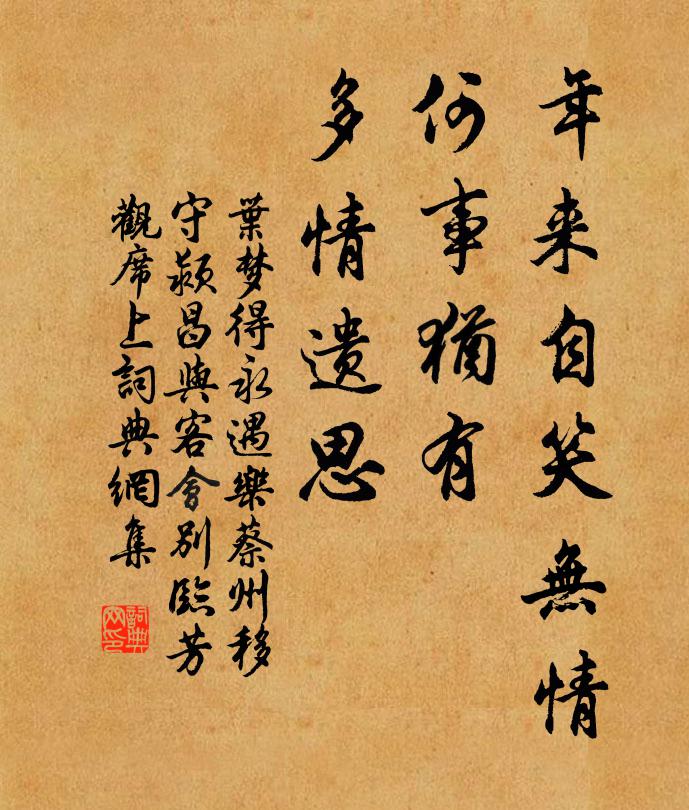 年来自笑無情
何事猶有
多情遗思
葉梦得永遇樂蔡州移
守颍昌與客會别臨芳
觀席上詞典網集
詞典
网印